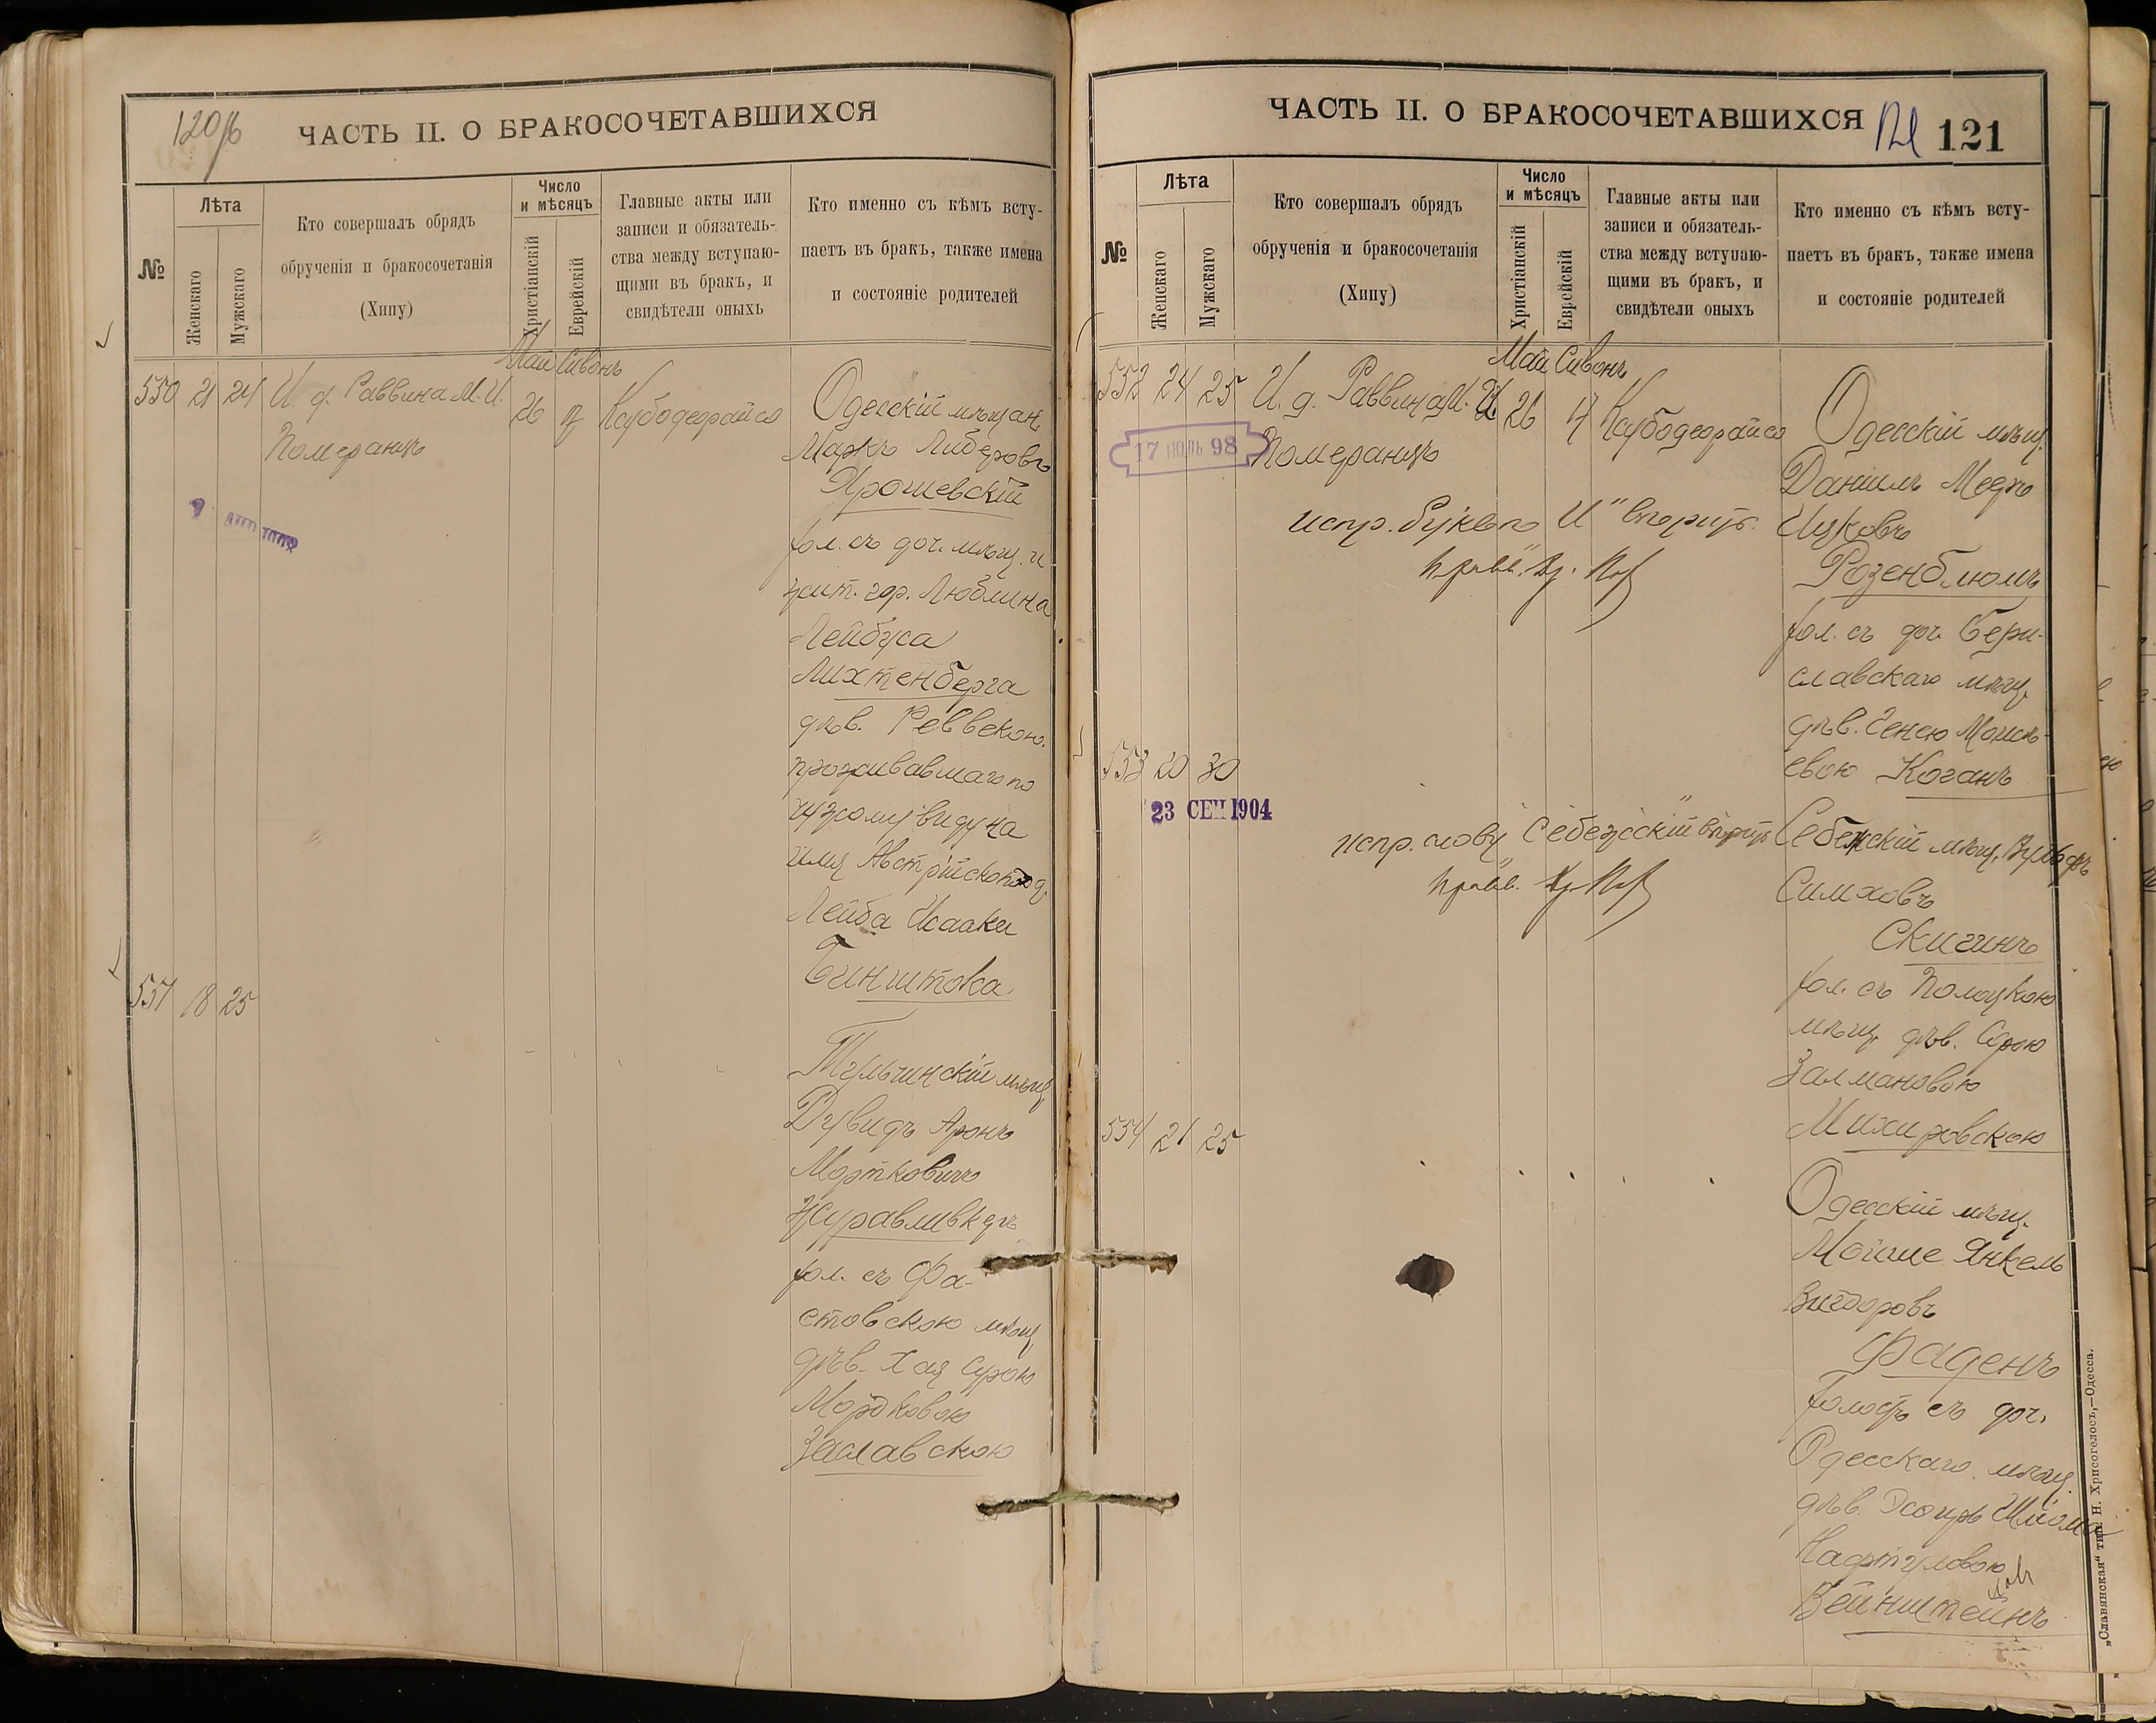 120
ЧАСТЬ II. О БРАКОСОЧЕТАВШИХСЯ
№
Лѣта
Женскаго
Мужскаго
Кто совершалъ обрядъ
обрученія и бракосочетанія
(Хипу)
Число
и мѣсяцъ
Христіанскій
Еврейскій
Главные акты или
записи и обязатель-
ства между вступаю-
щими въ бракъ, и
свидѣтели оныхъ
Кто именно съ кѣмъ всту-
паетъ въ бракъ, также имена
и состояніе родителей
Май Сивонъ
550 21 24 И. д. Раввина М. И.
Померанцъ
26
Одесскій мѣщан.
Маркъ Либеровъ
Ярошевскій
хол. съ доч. мѣщ. и
жит. гор. Люблина
Лейбуса
Лихтенберга
дѣв. Реввекою
проживавшаго по
чужому виду на
имя
Лейба Исаака
551 18 25
Тульчинскій мѣщ.
Дувидъ Аронъ
Мортковичъ
Журавлівкеръ
хол. съ Фа-
стовскою мѣщ.
дѣв. Хая Сурою
Мордковою
Заславскою
ЧАСТЬ II. О БРАКОСОЧЕТАВШИХСЯ
121
№
Лѣта
Женскаго
Мужскаго
Кто совершалъ обрядъ
обрученія и бракосочетанія
(Хипу)
Число
и мѣсяцъ
Христіанскій
Еврейскій
Главные акты или
записи и обязатель-
ства между вступаю-
щими въ бракъ, и
свидѣтели оныхъ
Кто именно съ кѣмъ всту-
паетъ въ бракъ, также имена
и состояніе родителей
Май Сивонъ
552 24 25 И. д. Раввина М. И. 26
17 98
Померанцъ
испр. букв. И
Одесскій мѣщ.
Даніилъ
Ицковъ
Розенблюмъ
хол. съ доч. Бери-
славскаго мѣщ.
дѣв. Генею Моисѣ-
евою Коганъ
553 20 30
23 СЕН 1904
испр. слову Себежскій
Себежскій мѣщ. Вульфъ
Симховъ
Скигинъ
хол. съ Полоцкою
мѣщ. дѣв. Сорою
Залмановою
Михировскою
554 21 25
Одесскій мѣщ.
Мойше Янкель
Вигдоровъ
Фаденъ
холост. съ доч.
Одесскаго мѣщ.
дѣв.
Нафтуловою
Вейнштейнъ
„Славянская“ тип. Н. Хрисогелосъ,—Одесса.